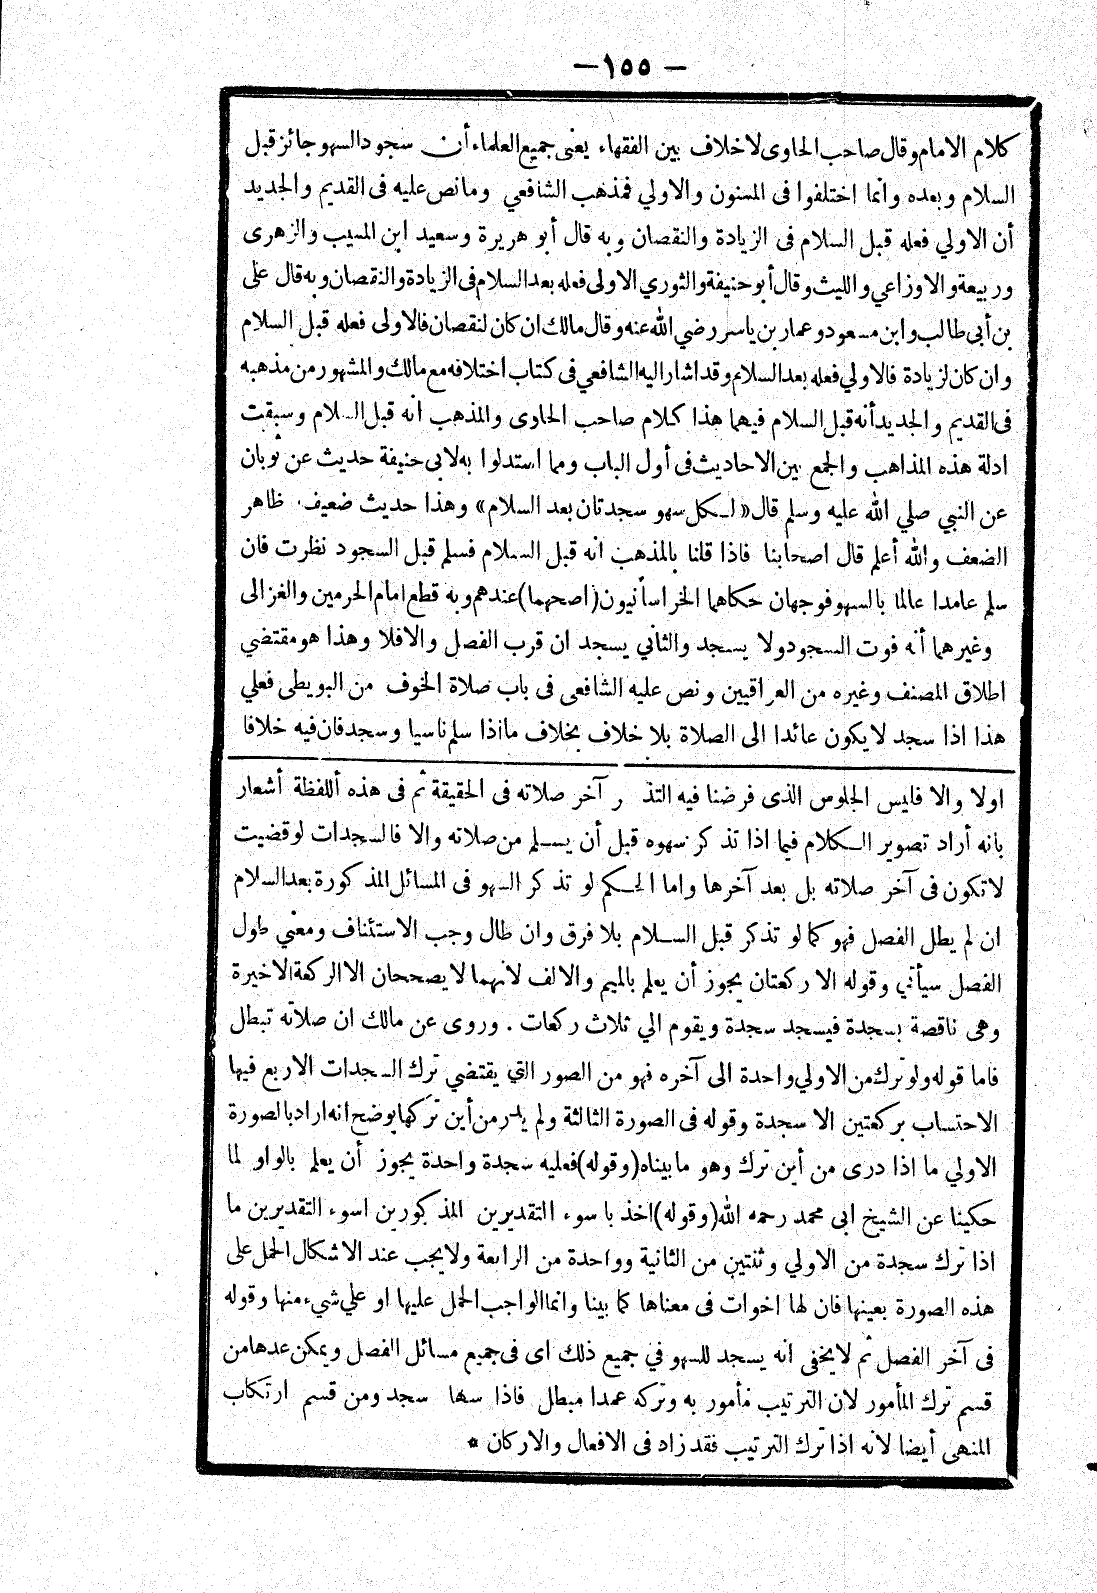 — ١٥٥ —
كلام الامام وقال صاحب الحاوى لا خلاف بين الفقهاء يعنى جميع العلماء أن سجود السهو جائز قبل
السلام وبعده وانما اختلفوا فى المسنون والاولي فمذهب الشافعي وما نص عليه فى القديم والجديد
أن الاولي فعله قبل السلام فى الزيادة والنقصان وبه قال أبو هريرة وسعيد ابن المسيب والزهرى
وربيعة والاوزاعي والليث وقال أبو حنيفة والثوري الاولى فعله بعد السلام فى الزيادة والنقصان وبه قال على
بن أبى طالب وابن مسعود وعمار بن ياسر رضي الله عنه وقال مالك ان كان لنقصان فالاولى فعله قبل السلام
وان كان لزيادة فالاولي فعله بعد السلام وقد اشار اليه الشافعي فى كتاب اختلافه مع مالك والمشهور من مذهبه
فى القديم والجديد أنه قبل السلام فيهما هذا كلام صاحب الحاوى والمذهب انه قبل السلام وسبقت
ادلة هذه المذاهب والجمع بين الاحاديث فى أول الباب ومما استدلوا به لابى حنيفة حديث عن ثوبان
عن النبي صلي الله عليه وسلم قال « لـكل سهو سجدتان بعد السلام » وهذا حديث ضعيف ظاهر
الضعف والله أعلم قال اصحابنا فاذا قلنا بالمذهب انه قبل السلام فسلم قبل السجود نظرت فان
سلم عامدا عالما بالسهو فوجهان حكاهما الخراسانيون (اصحهما) عندهم وبه قطع امام الحرمين والغزالى
وغيرهما أنه فوت السجود ولا يسجد والثاني يسجد ان قرب الفصل والا فلا وهذا هو مقتضي
اطلاق المصنف وغيره من العراقيين ونص عليه الشافعى فى باب صلاة الخوف من البويطى فعلي
هذا اذا سجد لا يكون عائدا الى الصلاة بلا خلاف بخلاف ما اذا سلم ناسيا وسجد فان فيه خلافا
اولا والا فليس الجلوس الذى فرضنا فيه التذ ر آخر صلاته فى الحقيقة ثم فى هذه أللفظة أشعار
بانه أراد تصوير الـكلام فيما اذا تذكر سهوه قبل أن يسـلم من صلاته والا فالسجدات لو قضيت
لا تكون فى آخر صلاته بل بعد آخرها واما الحـكم لو تذكر السهو فى المسائل المذكورة بعد السلام
ان لم يطل الفصل فهو كما لو تذكر قبل السـلام بلا فرق وان طال وجب الاستئناف ومعني طول
الفصل سيأتي وقوله الا ركعتان يجوز أن يعلم بالميم والالف لانهما لا يصححان الا الركعة الاخيرة
وهى ناقصة بسجدة فيسجد سجدة ويقوم الي ثلاث ركعات . وروى عن مالك ان صلاته تبطل
فاما قوله ولو ترك من الاولي واحدة الى آخره فهو من الصور التي يقتضي ترك السجدات الاربع فيها
الاحتساب بركعتين الا سجدة وقوله فى الصورة الثالثة ولم يدر من أين تركها يوضح انه اراد بالصورة
الاولي ما اذا درى من أين ترك وهو ما بيناه (وقوله) فعليه سجدة واحدة يجوز أن يعلم بالواو لما
حكينا عن الشيخ ابى محمد رحمه الله (وقوله) اخذ باسوء التقديرين المذكورين اسوء التقديرين ما
اذا ترك سجدة من الاولي وثنتين من الثانية وواحدة من الرابعة ولا يجب عند الاشكال الحمل على
هذه الصورة بعينها فان لها اخوات فى معناها كما بينا وانما الواجب الحمل عليها او علي شيء منها وقوله
فى آخر الفصل ثم لا يخفى انه يسجد للسهو في جميع ذلك اى فى جميع مسائل الفصل ويمكن عدها من
قسم ترك المأمور لان الترتيب مأمور به وتركه عمدا مبطل فاذا سها سجد ومن قسم ارتكاب
المنهى أيضا لانه اذا ترك الترتيب فقد زاد فى الافعال والاركان *